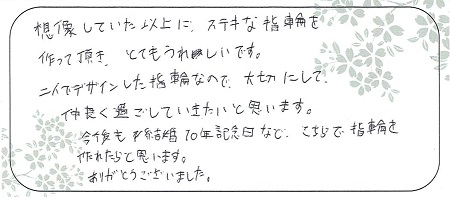 想像していた以上に、ステキな指輪を
作って頂き、とてもうれしいです。
二人でデザインした指輪なので、大切にして、
仲良く過ごしていきたいと思います。
今後も結婚10年記念日など、こちらで指輪を
作れたらと思います。
ありがとうございました。